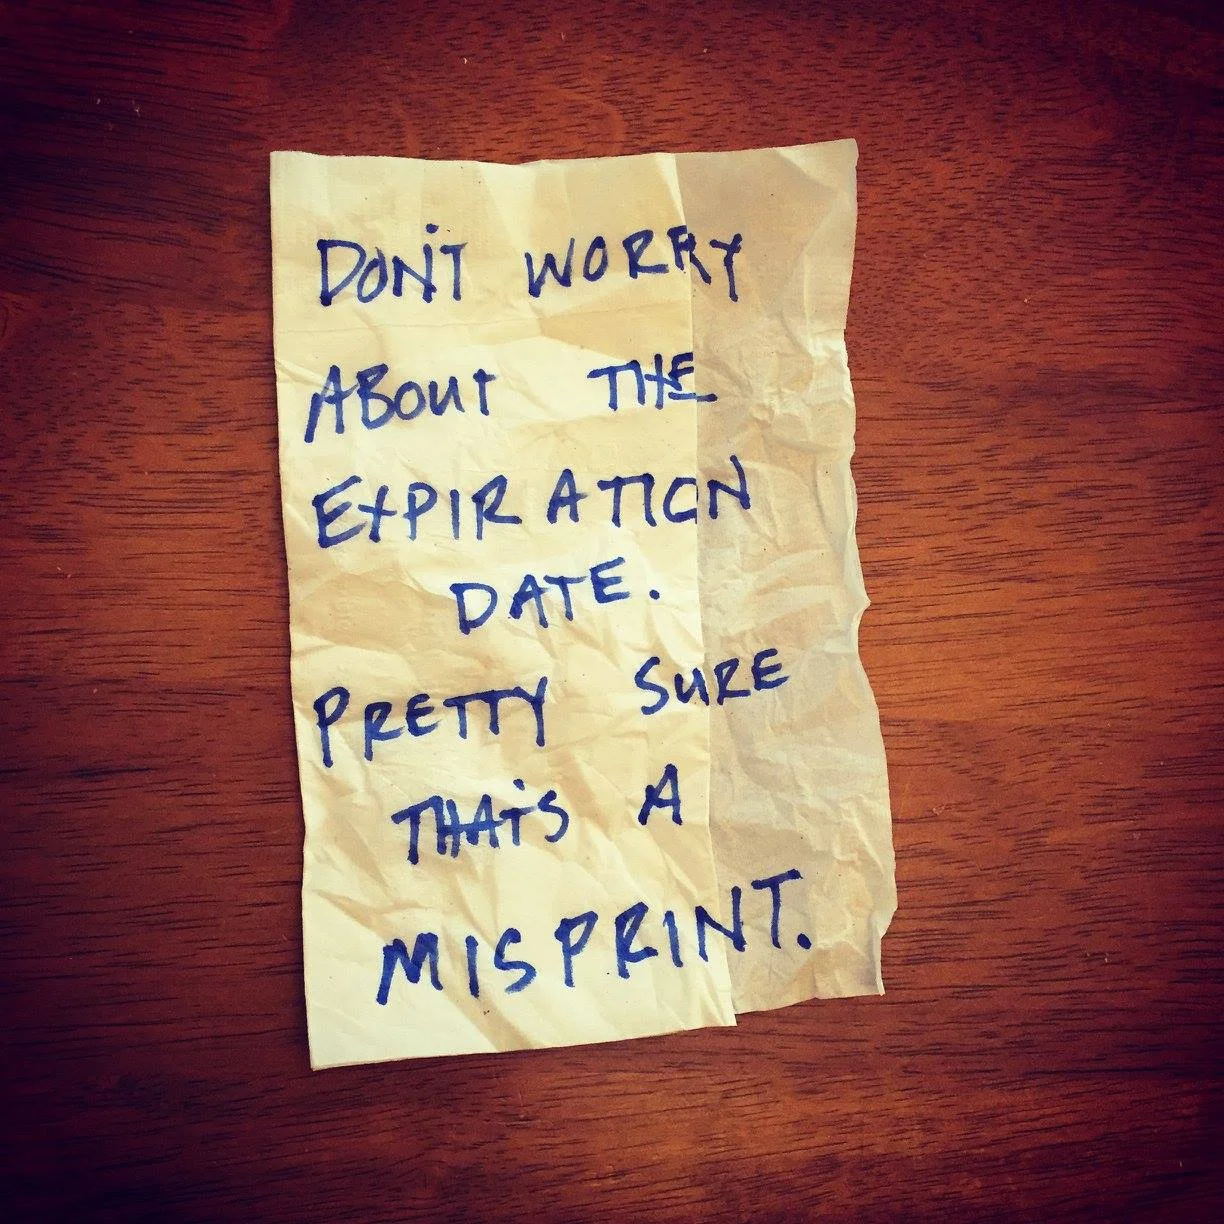 DON'T WORRY
ABOUT THE
EXPIRATION
DATE.
PRETTY SURE
THAT'S A
MISPRINT.